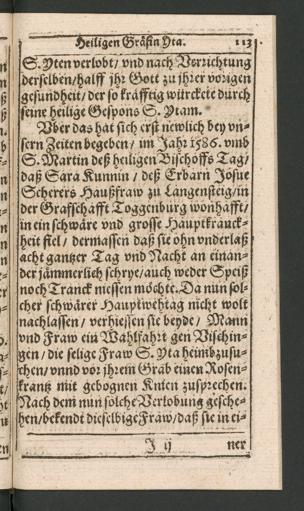 Heiligen Gräfin Yta. 113
S. Yten verlobt/ vnd nach Verrichtung
derselben/halff jhr Gott zu jhrer vorigen
gesundheit/ der so kräfftig würckete durch
seine heilige Gespons S. Ytam.
Vber das hat sich erst newlich bey vn-
sern Zeiten begeben/ im Jahr 1586. vmb
S. Martin deß heiligen Bischoffs Tag/
daß Sara Kunnin/ deß Erbarn Josue
Scherers Haußfraw zu Langensteig/in
der Grafschafft Toggenburg wonhafft/
in ein schwäre vnd grosse Hauptkranck-
heit fiel/ dermassen daß sie ohn vnderlaß
acht gantzer Tag vnd Nacht an einan-
der jämmerlich schrye/auch weder Speiß
noch Tranck niessen möchte. Da nun sol-
cher schwärer Hauptwehtag nicht wolt
nachlassen/ verhiessen sie beyde/ Mann
vnd Fraw ein Wahlfahrt gen Vischin-
gen/ die selige Fraw S. Yta heimbzusu-
chen/vnnd vor jhrem Grab einen Rosen-
krantz mit gebognen Knien zusprechen.
Nach dem nun solche Verlobung gesche-
hen/bekendt dieselbige Fraw/daß sie in ei-
J ij ner